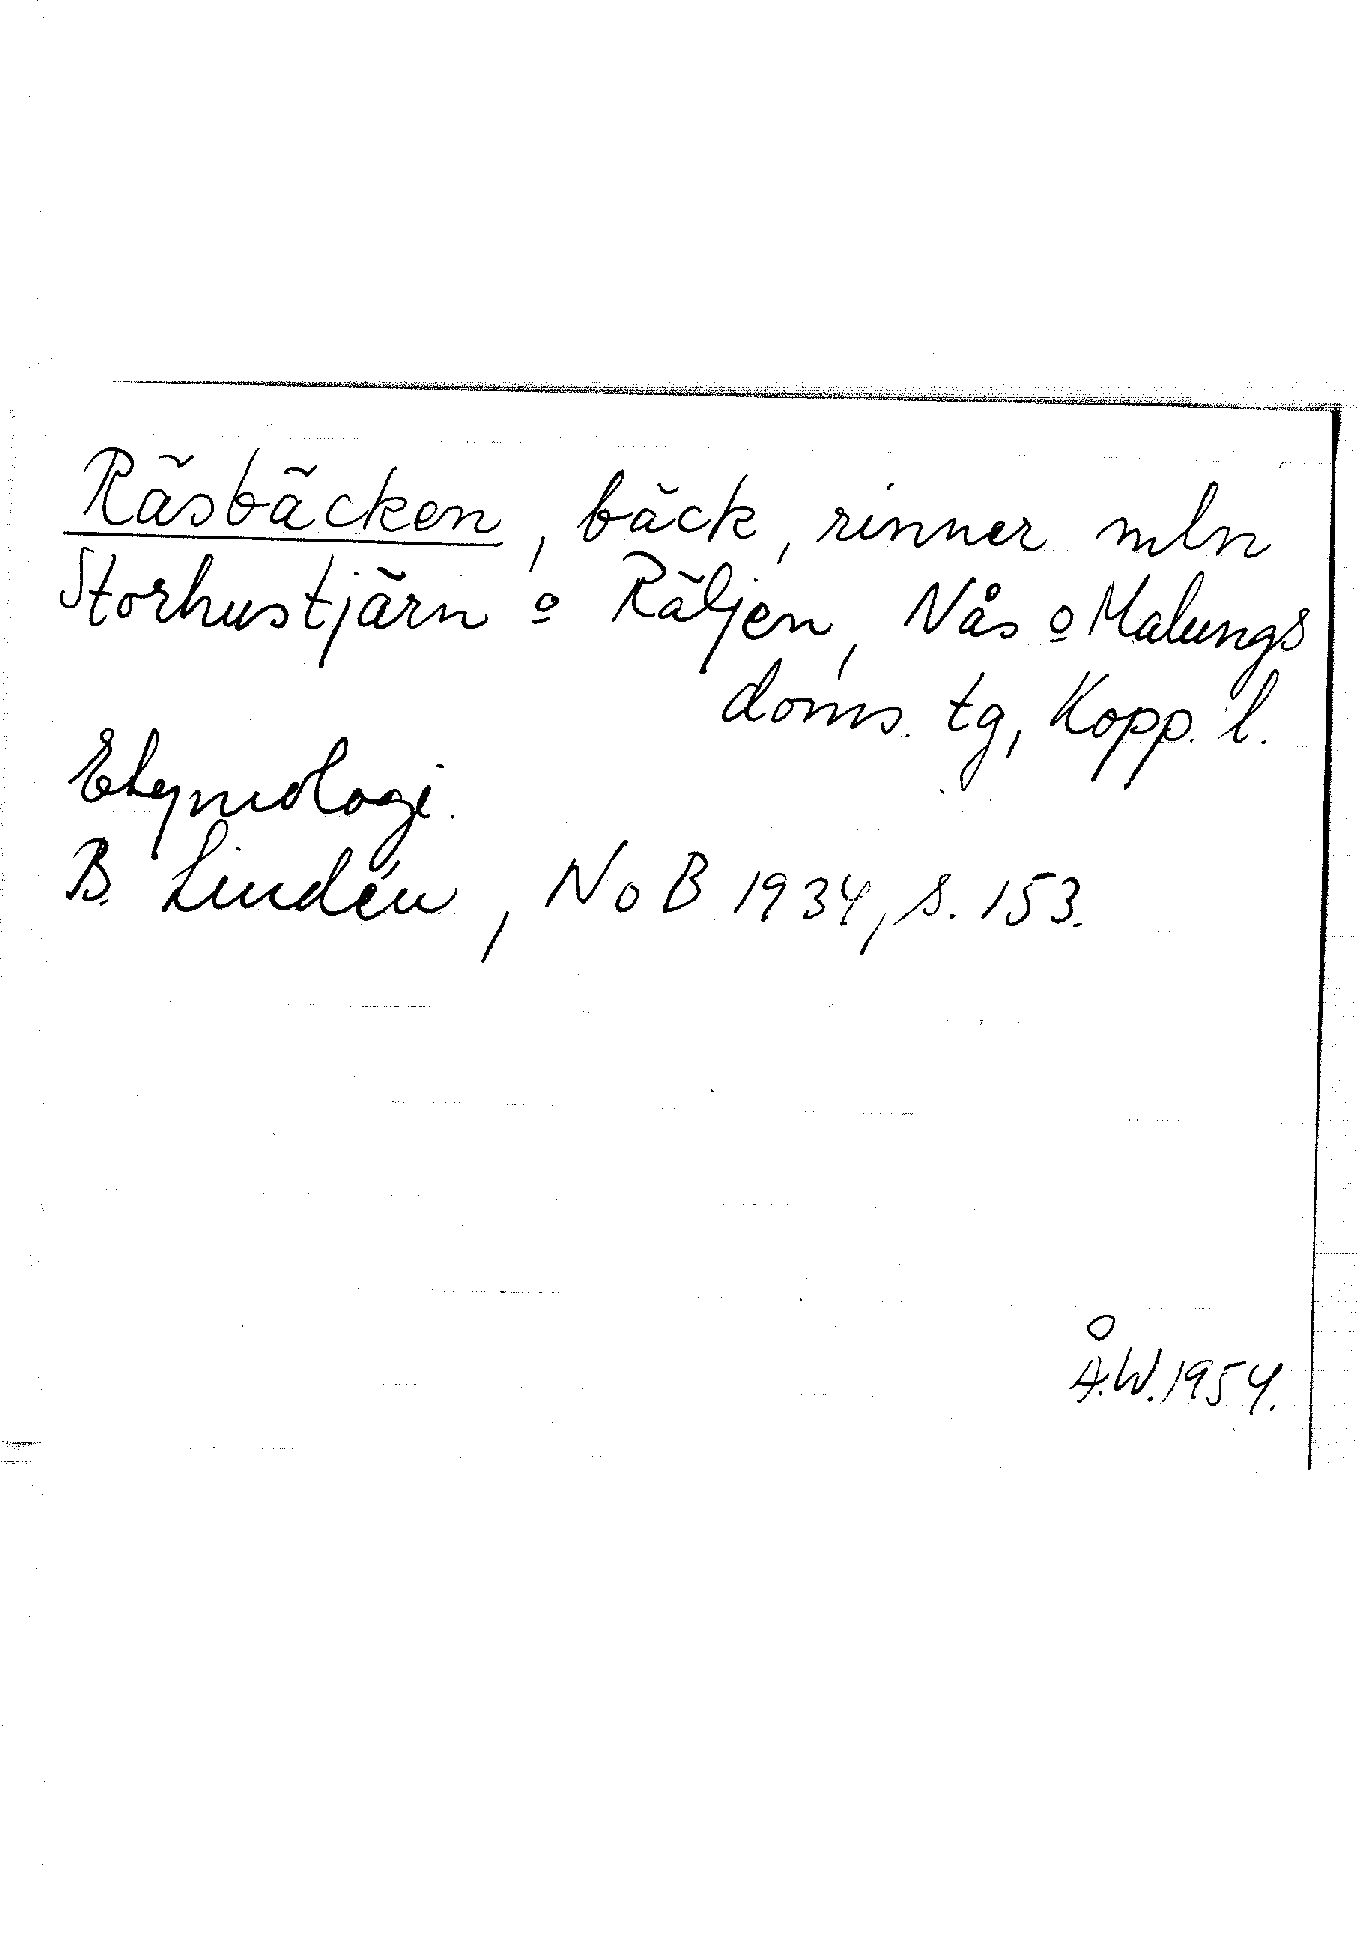 Räsbäcken, bäck, rinner mln
Storhustjärn o Räljen, Nås o Malungs
doms. tg, Kopp. l.
Etymologi.
B. Lindén, NoB 1934, s. 153.
Å.W. 1954.